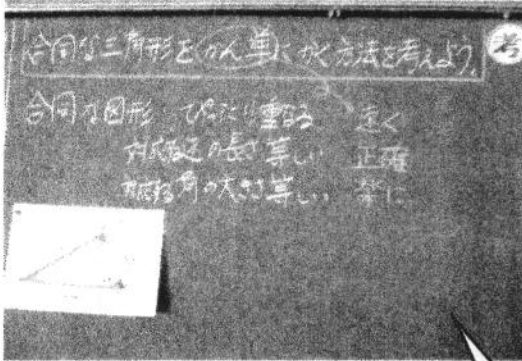 合同な三角形をかん単にかく方法を考えよう。
考
合同な図形 ぴったり重なる 速く
対応する辺の長さ 等しい 正確
対応する角の大きさ 等しい 楽に